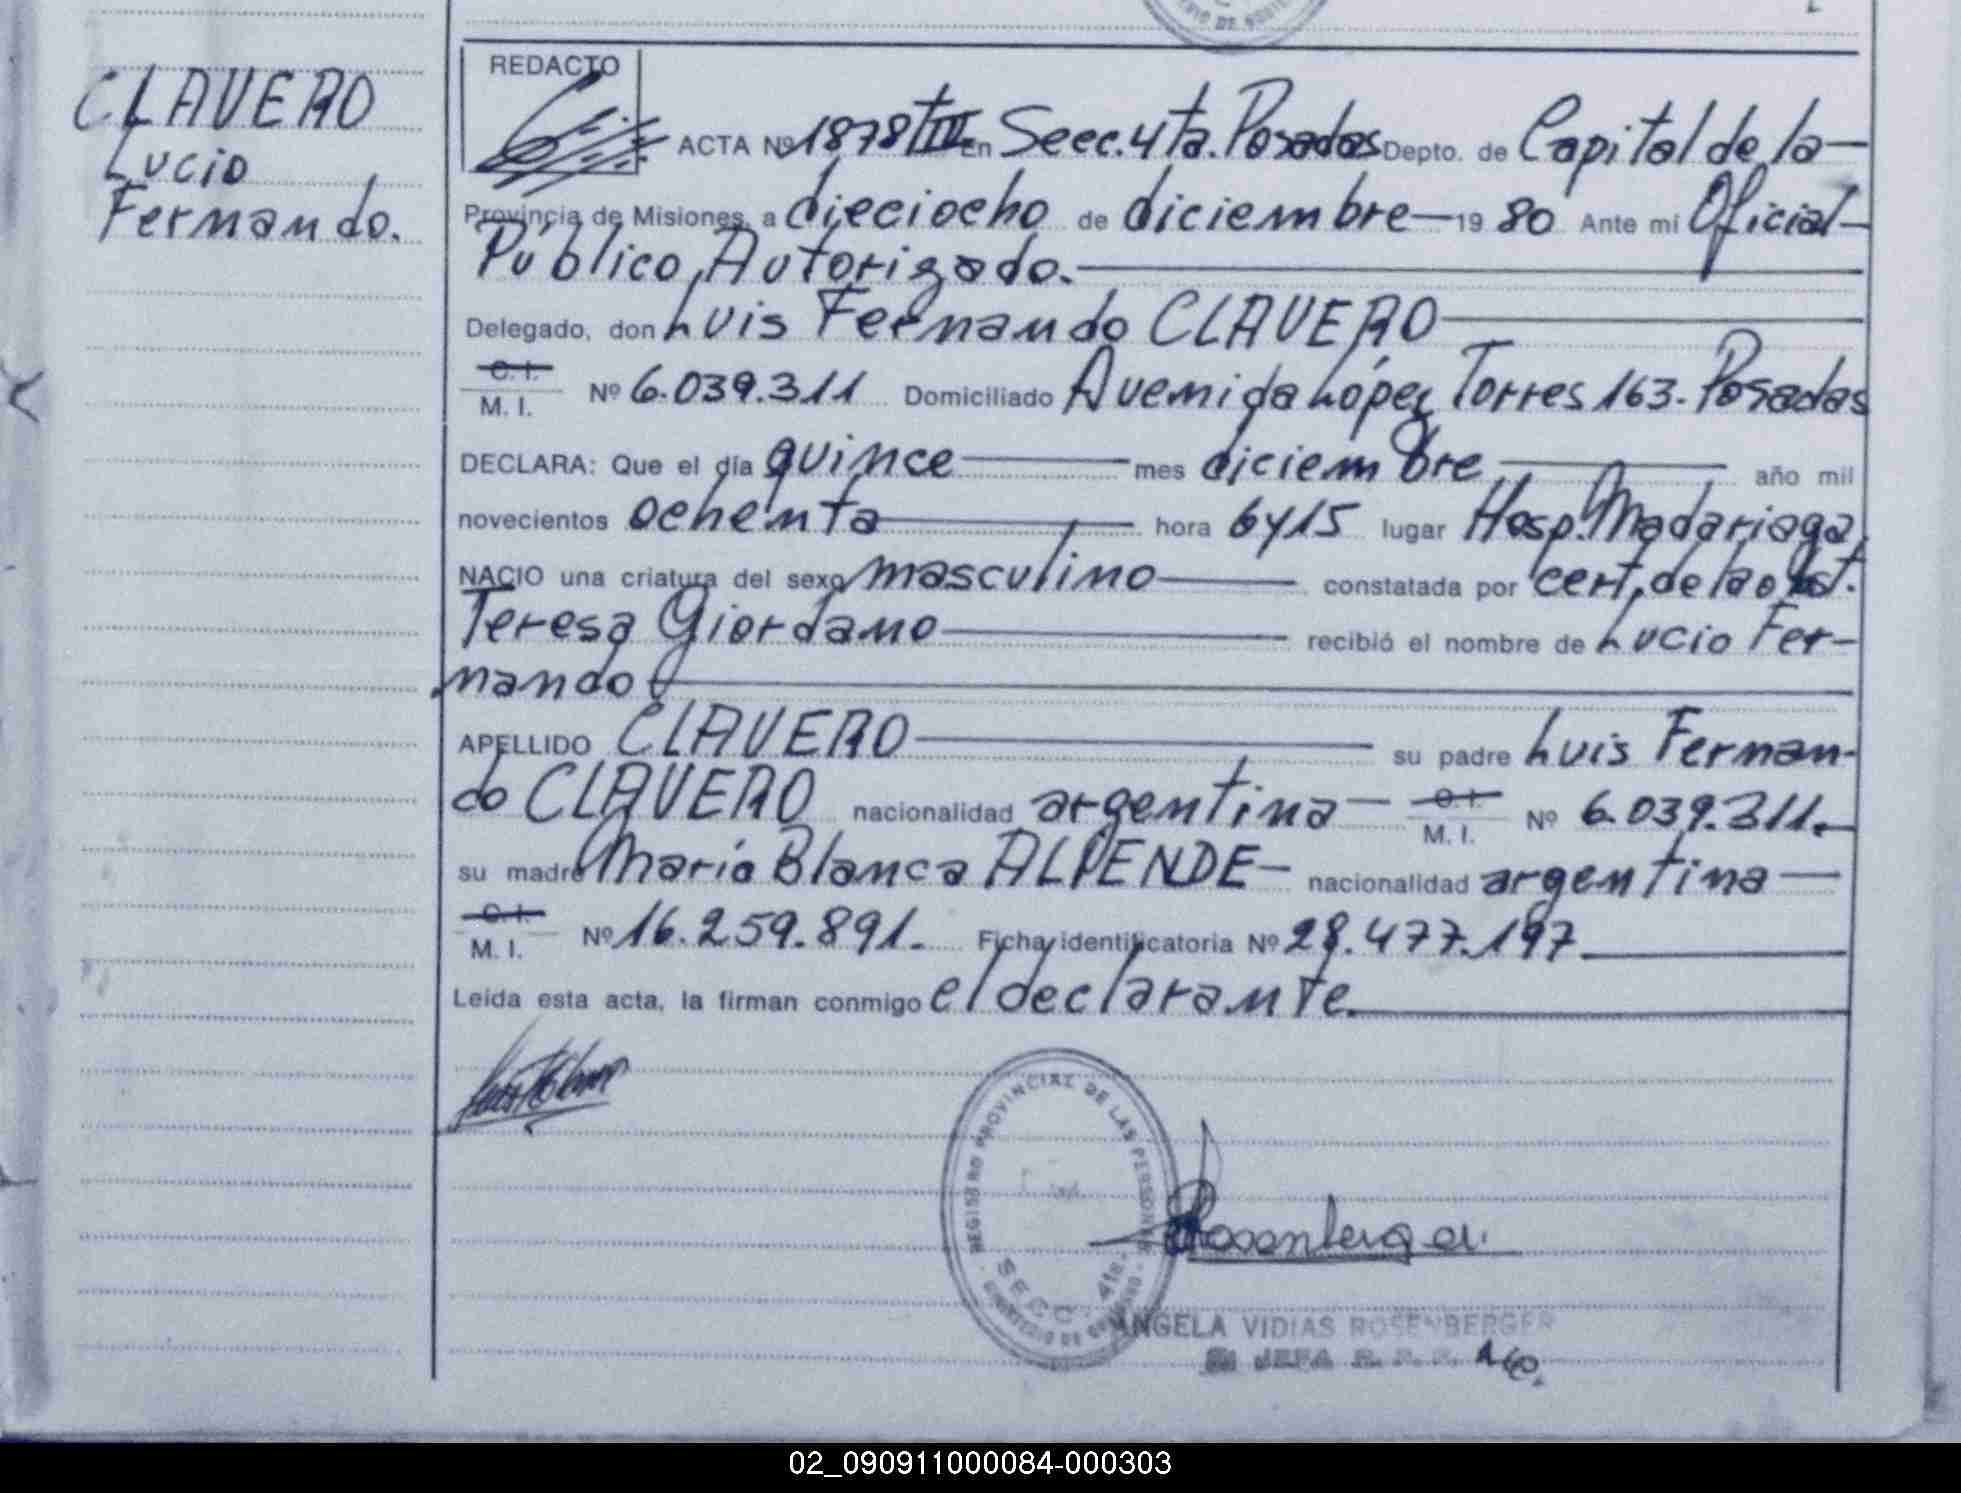 CLAVERO
Lucio
Fernando.
REDACTO
ACTA Nº 1878 TIII En Secc. 4ta. Posadas Depto. de Capital de la
Provincia de Misiones, a dieciocho de diciembre 1980 Ante mí Oficial
Público Autorizado.
Delegado, don Luis Fernando CLAVERO
C. I.
M. I. Nº 6.039.311 Domiciliado Avenida López Torres 163. Posadas
DECLARA: Que el día quince mes diciembre año mil
novecientos ochenta hora 6y15 lugar Hosp. Madariaga
NACIO una criatura del sexo masculino constatada por cert. de la obst.
Teresa Giordano recibió el nombre de Lucio Fer-
nando
APELLIDO CLAVERO su padre Luis Fernan-
do CLAVERO nacionalidad argentina C. I. M. I. Nº 6.039.311.
su madre María Blanca ALPENDE nacionalidad argentina
C. I.
M. I. Nº 16.259.891. Ficha identificatoria Nº 28.477.197
Leída esta acta, la firman conmigo el declarante.
REGISTRO PROVINCIAL DE LAS PERSONAS
SECC. 4ta.
MINISTERIO DE GOBIERNO
Rosenberger
ANGELA VIDIAS ROSENBERGER
JEFA R. P. P.
02_090911000084-000303